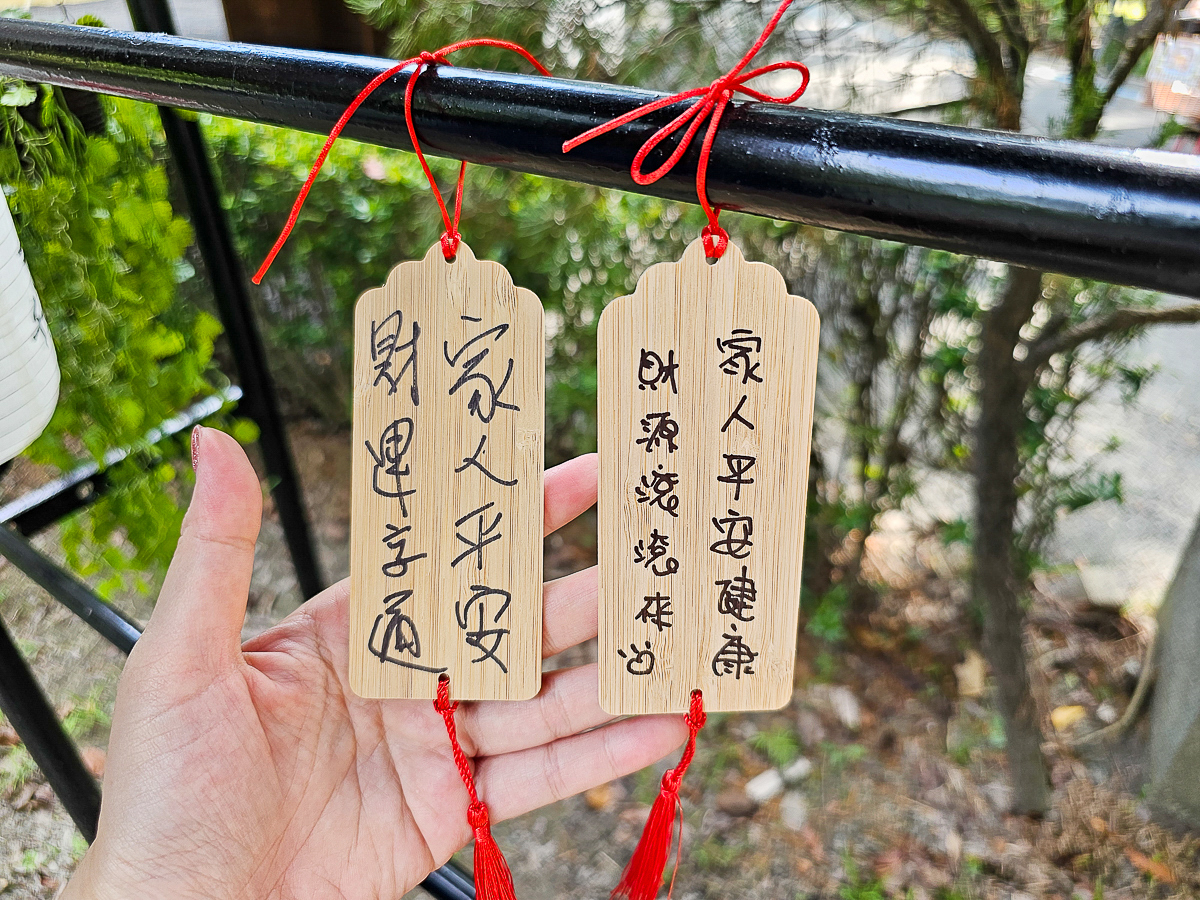 家人平安
財運亨通
家人平安健康
財源滾滾來